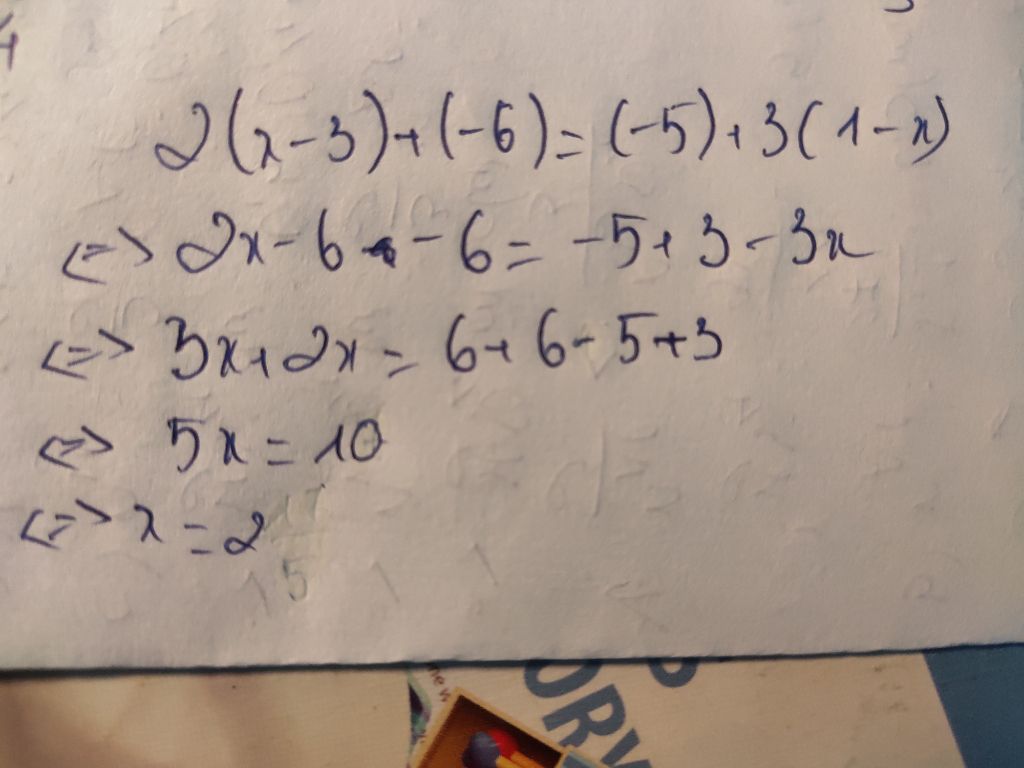 2(x-3)+(-6)=(-5)+3(1-x)
<=> 2x-6-6=-5+3-3x
<=> 3x+2x=6+6-5+3
<=> 5x=10
<=> x=2
5